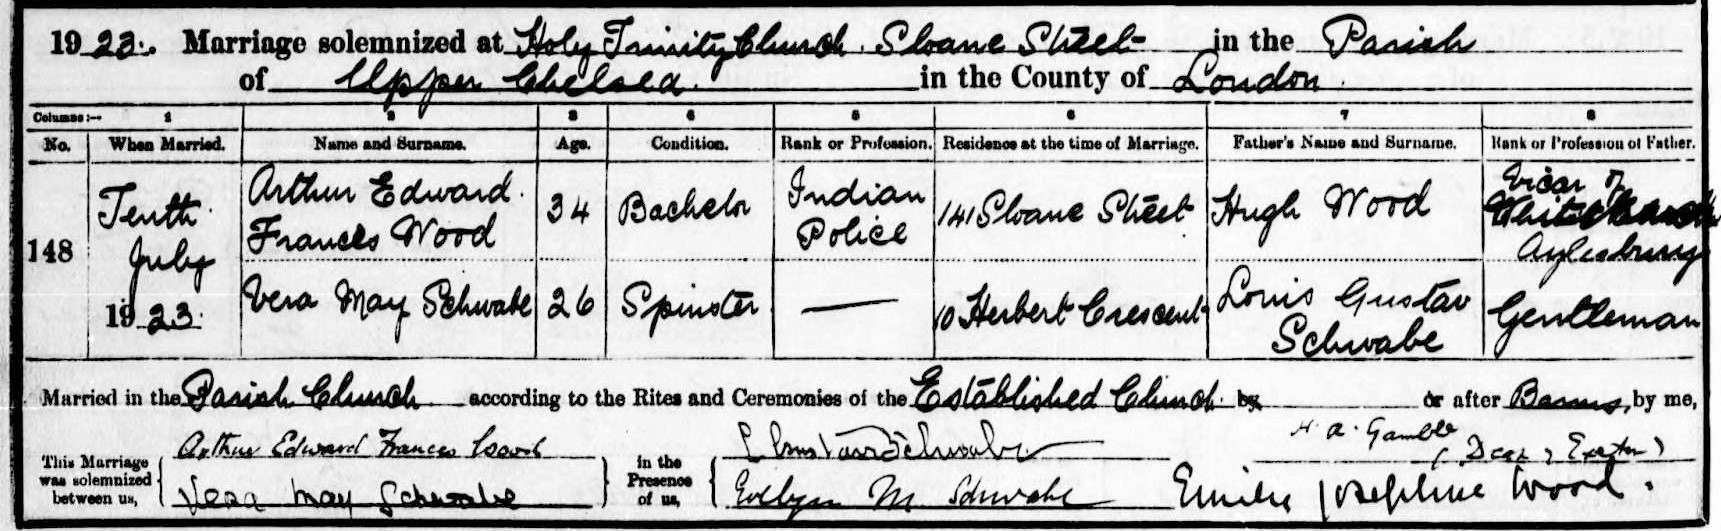 1923. Marriage solemnized at Holy Trinity Church Sloane Street in the Parish
of Upper Chelsea in the County of London.
Columns:— 1 2 3 4 5 6 7 8
No. When Married. Name and Surname. Age. Condition. Rank or Profession. Residence at the time of Marriage. Father's Name and Surname. Rank or Profession of Father.
148 Tenth July 1923. Arthur Edward Frances Wood 34 Bachelor Indian Police 141 Sloane Street Hugh Wood Vicar of Aylesbury
Vera May Schwabe 26 Spinster — 10 Herbert Crescent Louis Gustav Schwabe Gentleman
Married in the Parish Church according to the Rites and Ceremonies of the Established Church by or after Banns, by me,
This Marriage was solemnized between us, Arthur Edward Frances Wood
Vera May Schwabe
in the Presence of us, Schwabe
Evelyn M Schwabe Emilie Josephine Wood.
H. A. Gamble
(Dean of Exeter)